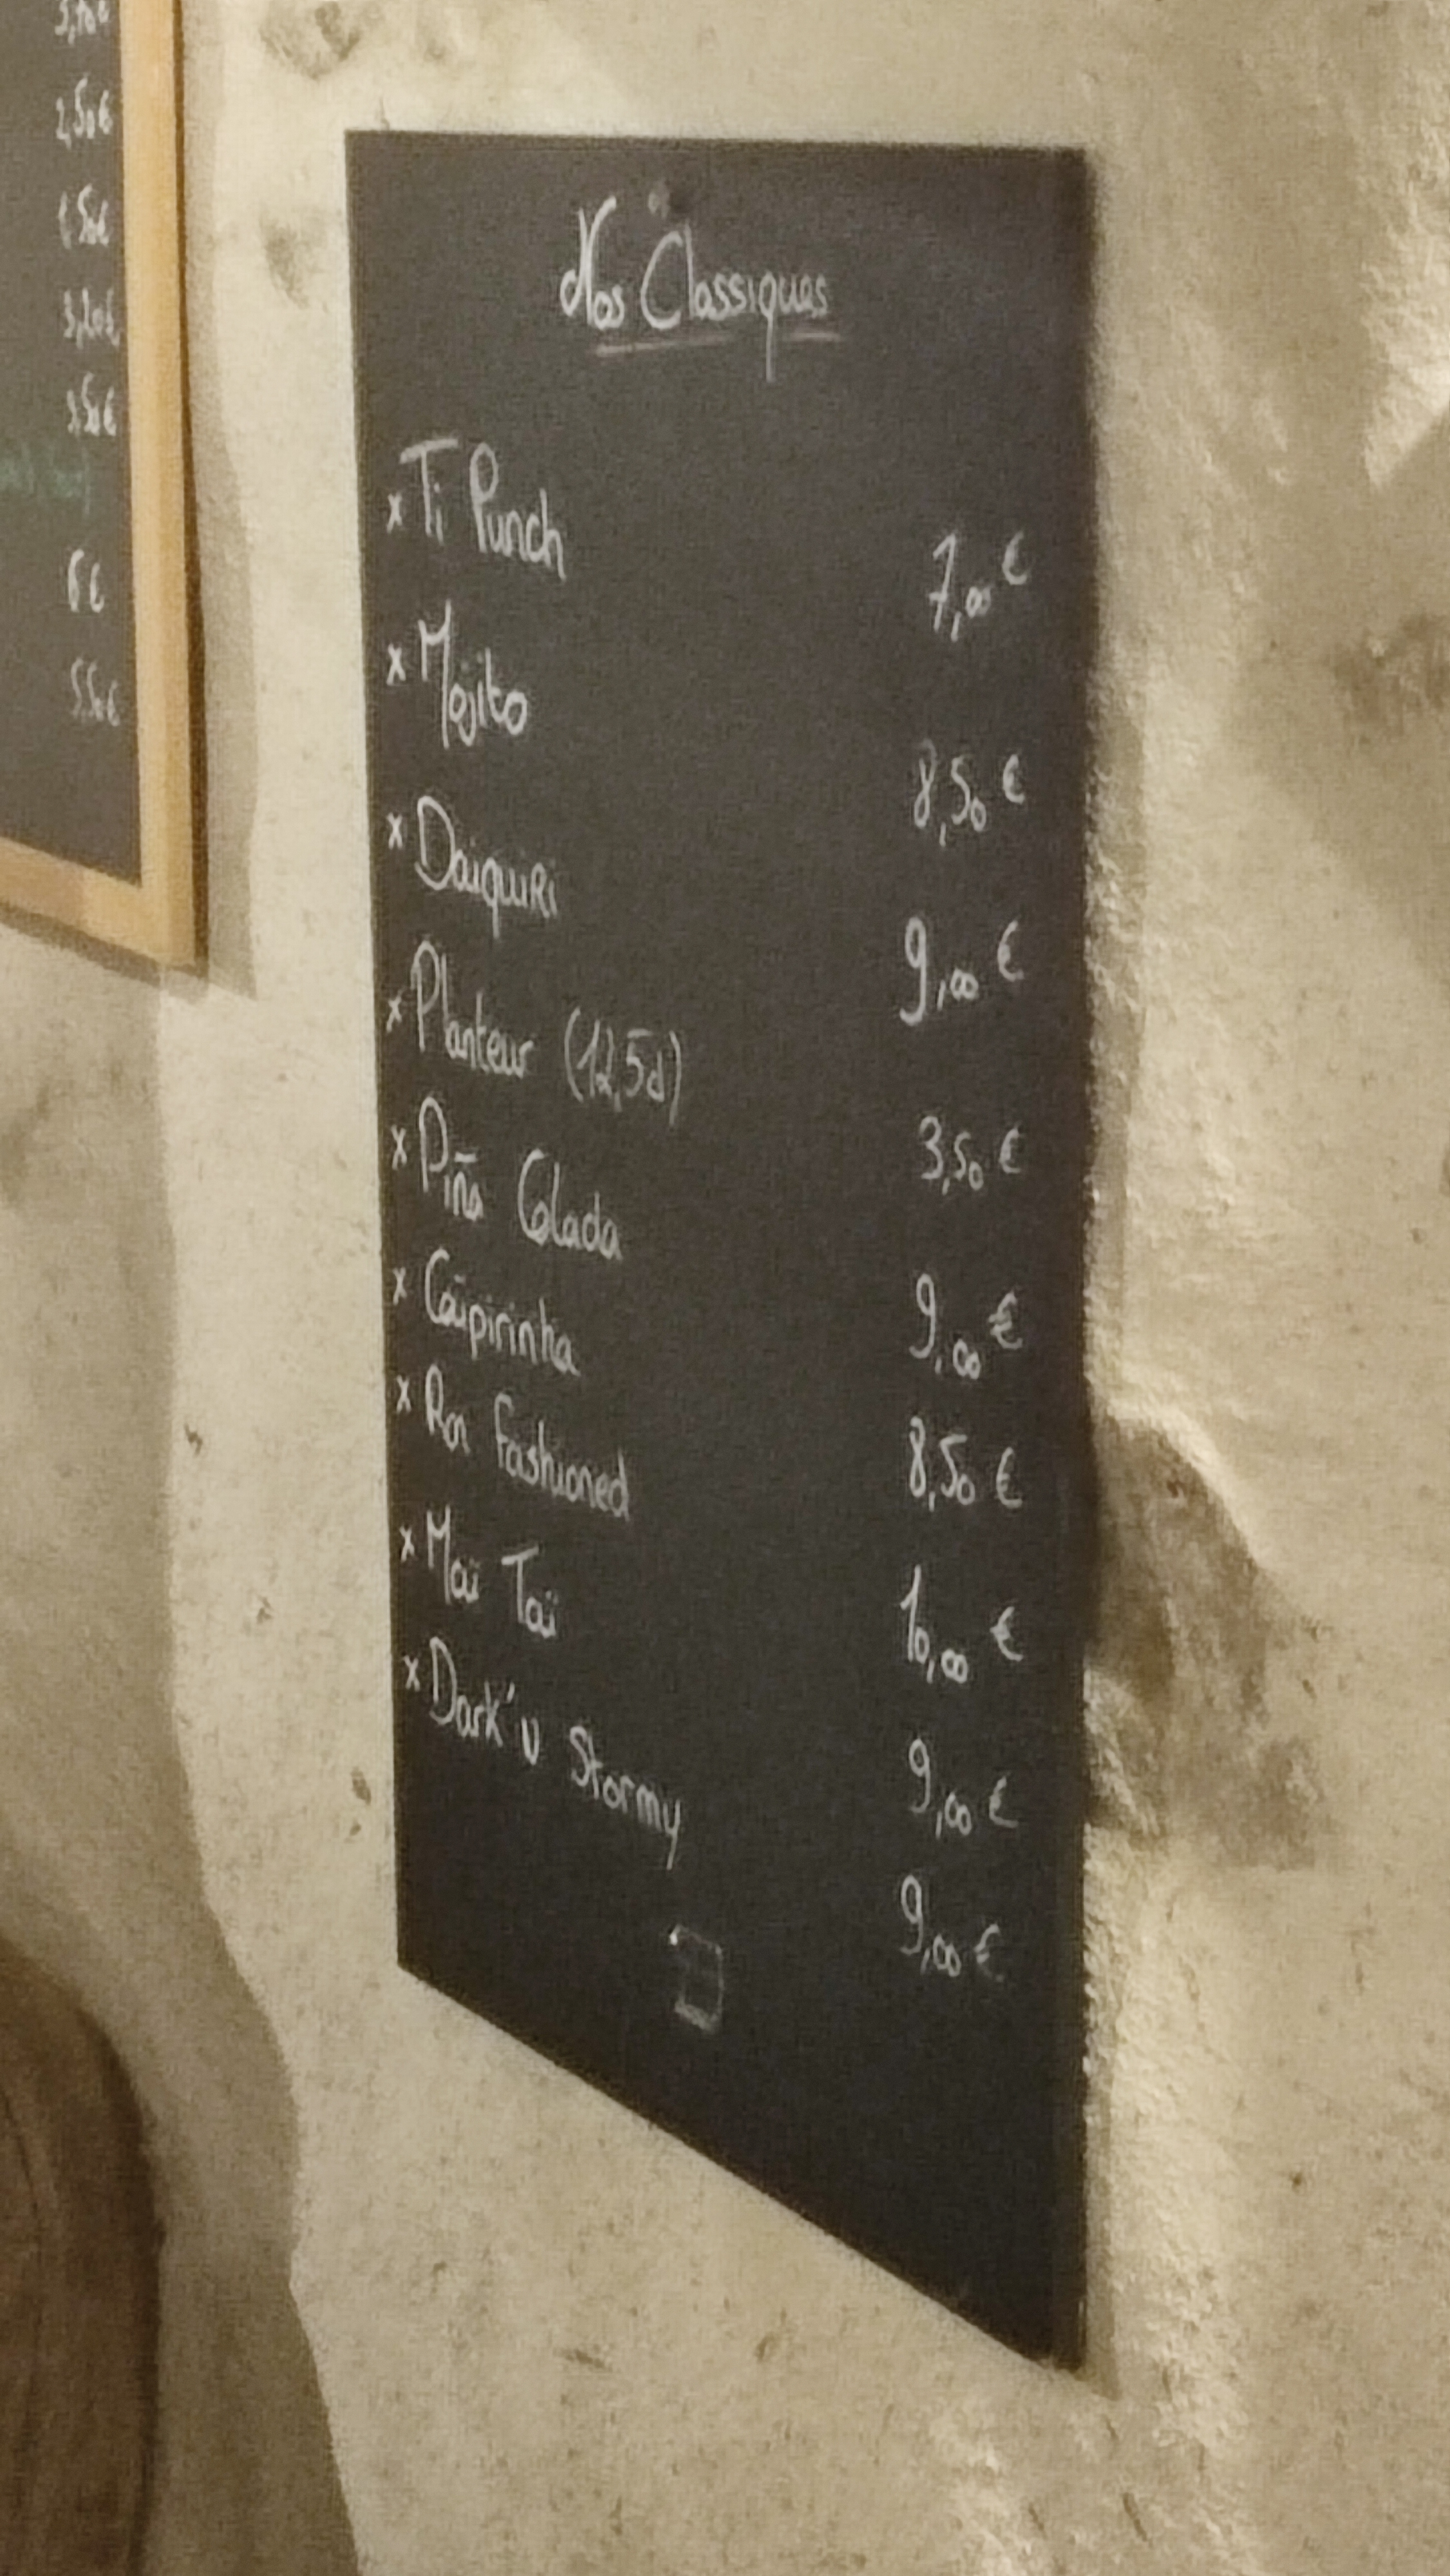 5,50€
2,50€
3,20€
3,50€
6€
5,50€
Nos Classiques
x Ti Punch 7,00 €
x Mojito 8,50 €
x Daiquiri 9,00 €
x Planteur (12,5cl) 3,50 €
x Piña Colada 9,00 €
x Caïpirinha 8,50 €
x Ron Fashioned 10,00 €
x Maï Taï 9,00 €
x Dark'n Stormy 9,00 €